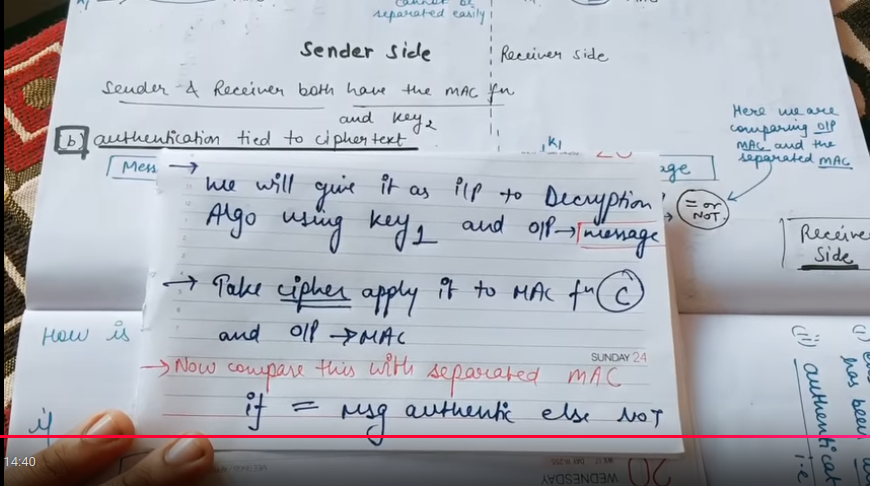 cannot be
separated easily
Sender Side
Receiver side
Sender & Receiver both have the MAC fn
and key2
(b) authentication tied to ciphertext
Here we are
comparing O/P
MAC and the
separated MAC
= or
NOT
Receiver
Side
→ We will give it as i/p to Decryption
Algo using key1 and O/P → message
→ Take cipher apply it to MAC fn (C)
and O/P → MAC
SUNDAY 24
→ Now compare this with separated MAC
if = msg authentic else NOT
How is
if
has been
authenticat
i.e
WEDNESDAY
20
14:40